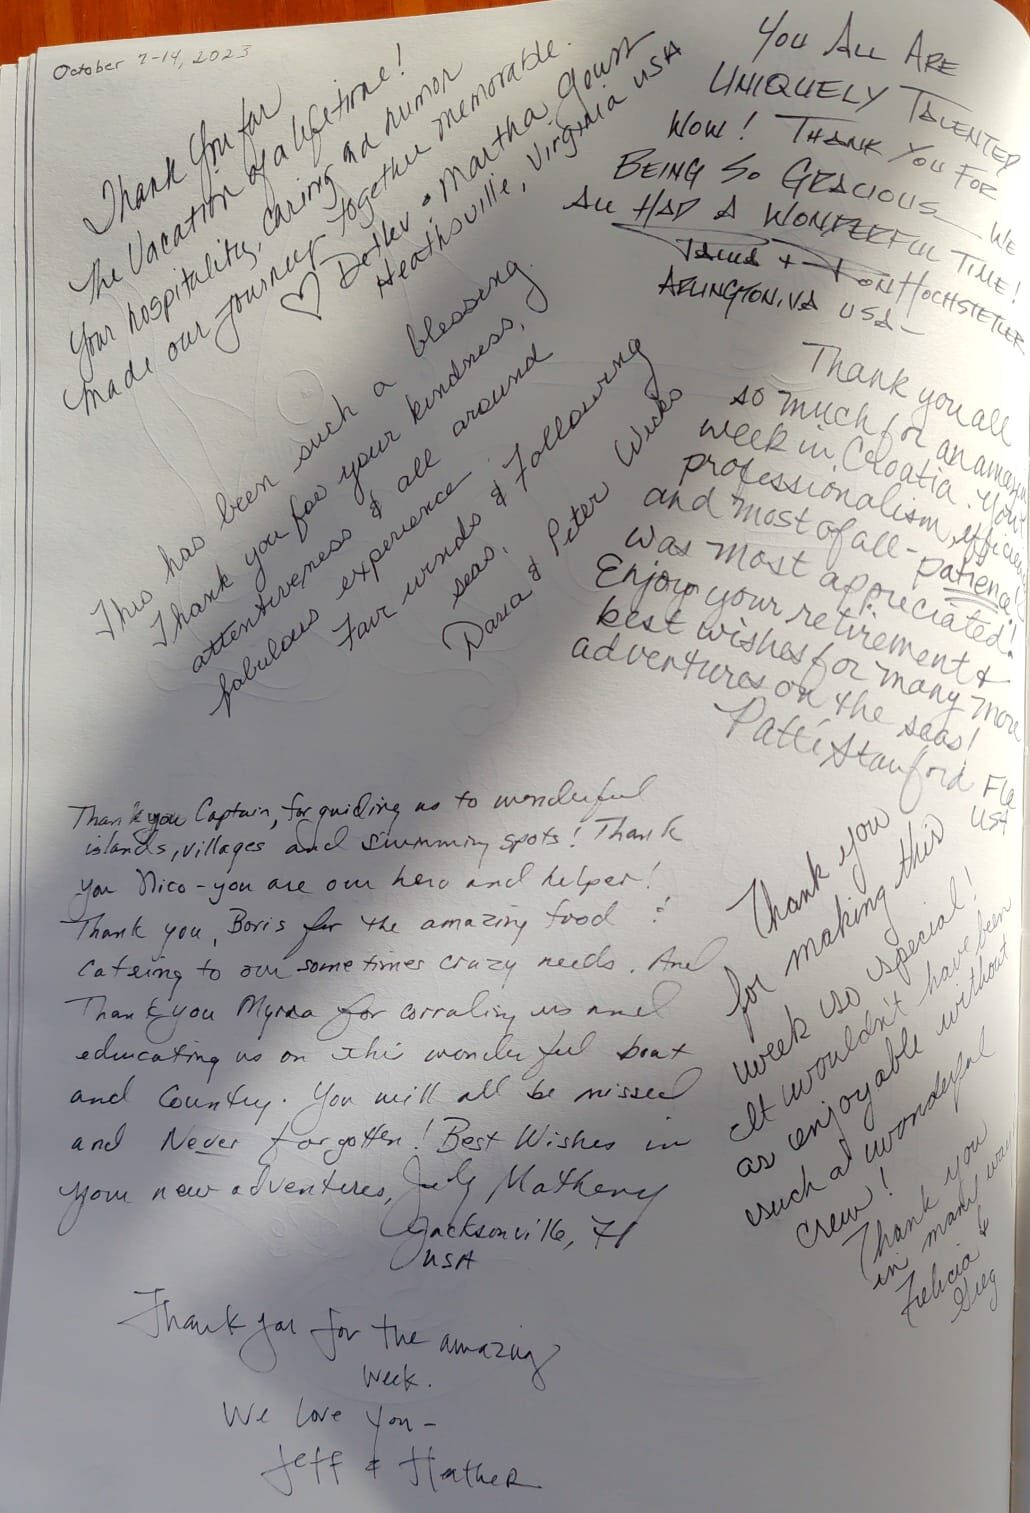 October 7-14, 2023
Thank you for
the vacation of a lifetime!
Your hospitality, caring and humor
made our journey together memorable.
♡ Martha Goust
Heathsville, Virginia USA
YOU ALL ARE
UNIQUELY TALENTED
WOW! THANK YOU FOR
BEING SO GRACIOUS WE
ALL HAD A WONDERFUL TIME!
+ DON HOCHSTETLER
ARLINGTON, VA USA-
This has been such a blessing.
Thank you for your kindness,
attentiveness & all around
fabulous experience
Fair winds & Following
seas,
Dana & Peter Wicks
Thank you all
so much for an amazing
week in Croatia. Your
professionalism, efficiency
and most of all - patience
was most appreciated!
Enjoy your retirement &
best wishes for many more
adventures on the seas!
Patti Stanford Fla
USA
Thank you Captain, for guiding us to wonderful
islands, villages and swimming spots! Thank
you Nico - you are our hero and helper!
Thank you, Boris for the amazing food &
catering to our sometimes crazy needs. And
Thank you for corraling us and
educating us on this wonderful boat
and Country. You will all be missed
and Never forgotten! Best Wishes in
your new adventures, Judy Matheny
Jacksonville, Fl
USA
Thank you
for making this
week so special!
It wouldn't have been
as enjoyable without
such a wonderful
crew!
Thank you
in many ways
Felicia &
Greg
Thank you for the amazing
week.
We love you -
Jeff & Heather